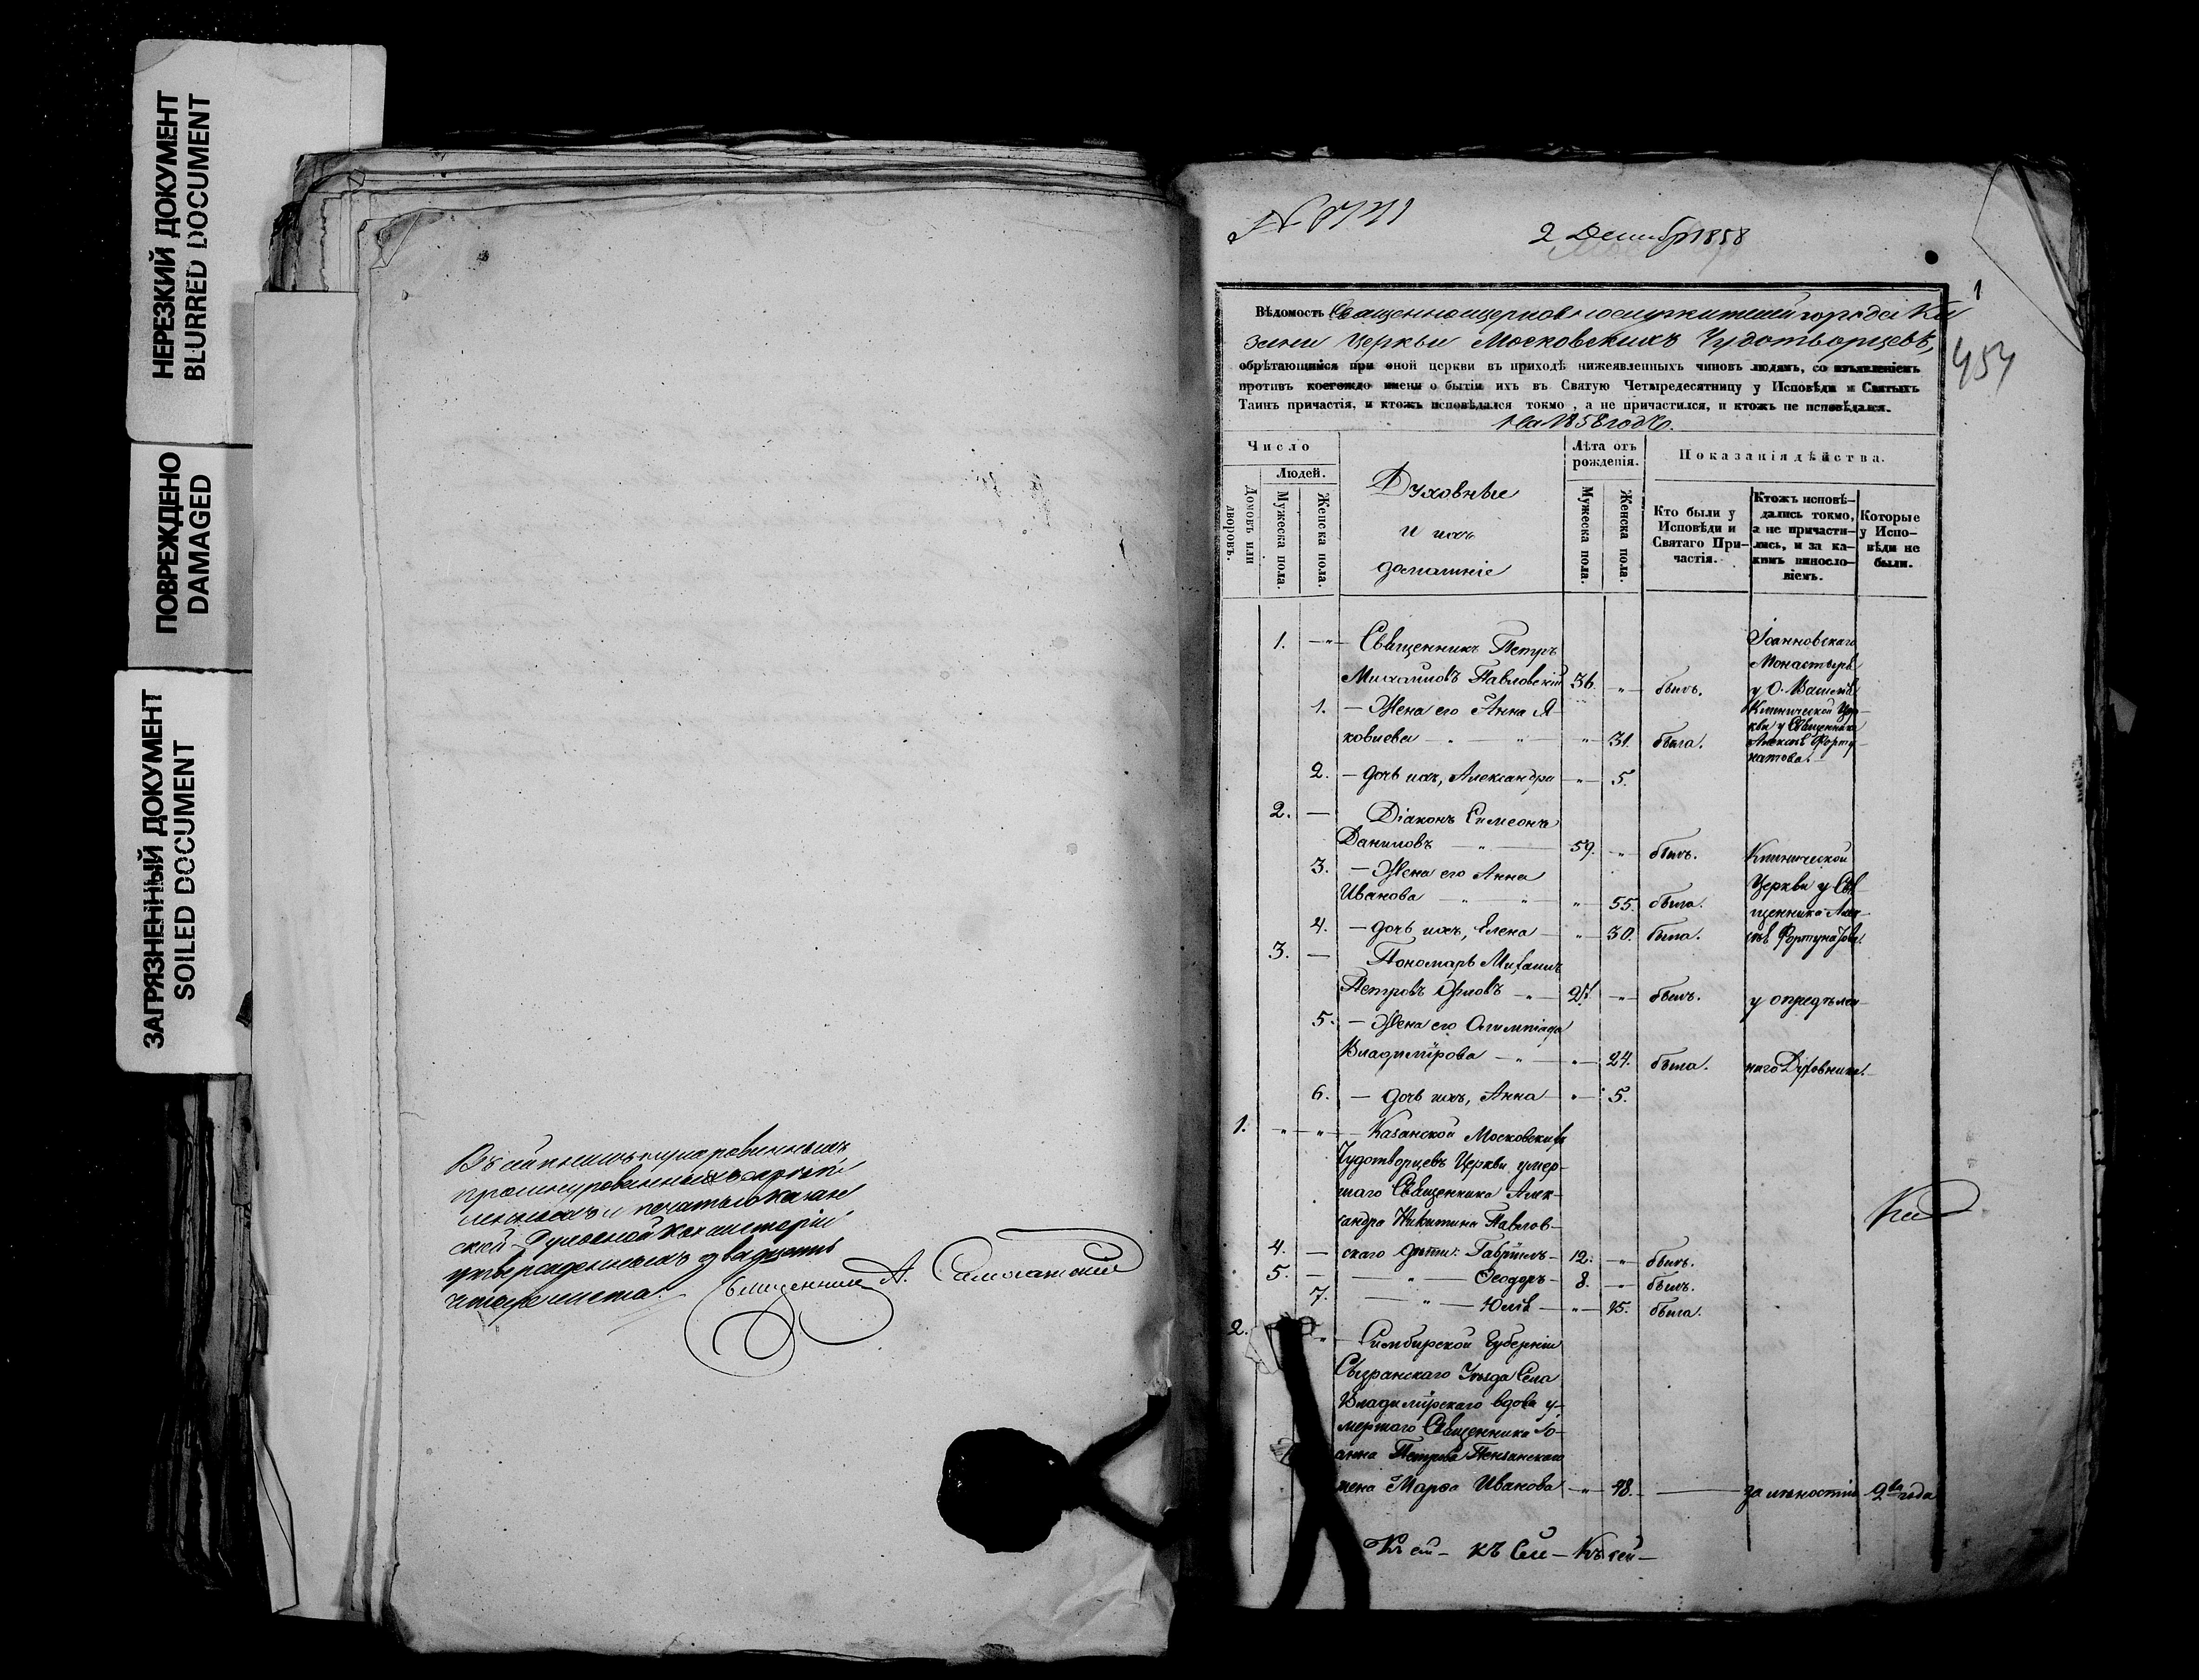 НЕРЕЗКИЙ ДОКУМЕНТ
BLURRED DOCUMENT
ПОВРЕЖДЕНО
DAMAGED
ЗАГРЯЗНЕННЫЙ ДОКУМЕНТ
SOILED DOCUMENT
Въ сей книгѣ нумерованныхъ
прошнурованныхъ
и печатью Казан
ской Духовной Консисторіи
утвержденныхъ двадцать
четыре листа.
Священникъ А.
2 1858
1
Вѣдомость Священноцерковнослужителей города Ка
зани Церкви Московскихъ Чудотворцевъ,
обрѣтающимся при оной церкви въ приходѣ нижеявленныхъ чиновъ людямъ, со изъявленіемъ
противъ коегождо имени о бытіи ихъ въ Святую Четыредесятницу у Исповѣди и Святыхъ
Таинъ причастія, и ктожъ исповѣдался токмо, а не причастился, и ктожъ не исповѣдался.
На 1858 годъ.
Число
Людей.
Домовъ или дворовъ.
Мужеска пола.
Женска пола.
Духовные
и ихъ
домашніе
Лѣта отъ рожденія.
Мужеска пола.
Женска пола.
Показанія дѣйства.
Кто были у Исповѣди и Святаго Причастія.
Ктожъ исповѣдались токмо, а не причастились, и за какимъ винословіемъ.
Которые у Исповѣди не были.
1. —"— Священникъ Петръ Іоанновскаго
Монастыря
Михаиловъ Павловскій 36. " былъ. у О.
1. — Жена его Анна Я- Клинической Цер-
кви у Священника
ковлева " " " 31. была. Алексѣя Форту-
натова.
2. — дочь ихъ, Александра " 5.
2. — Діаконъ Симеонъ
Даниловъ " 59. " былъ. Клинической
3. — Жена его Анна Церкви у Свя-
Иванова " " " 55. была. щенника Алек-
4. — дочь ихъ, Елена " 30. была. сѣя Фортунатова.
3. — Пономарь Михаилъ
Петровъ " " былъ. у опредѣлен-
5. — Жена его Олимпіада
Владимірова " " 24. была. наго Духовника.
6. — дочь ихъ, Анна " 5.
1. " " — Казанской Московскихъ
Чудотворцевъ Церкви умер-
шаго Священника Алек-
сандра Никитина Павлов-
4. — скаго дѣти: Гавріилъ — 12. " былъ.
5. — " — Ѳеодоръ — 8. " былъ.
7. — " — Юлія — " 15. была.
2. " — Симбирской Губерніи
Сызранскаго Уѣзда Села
Владимірскаго вдова у-
мершаго Священника Іо-
анна Петрова Пензенскаго
жена Марѳа Иванова " 48. — за лѣностію 2ва года
Къ сей — къ сей — Къ сей —